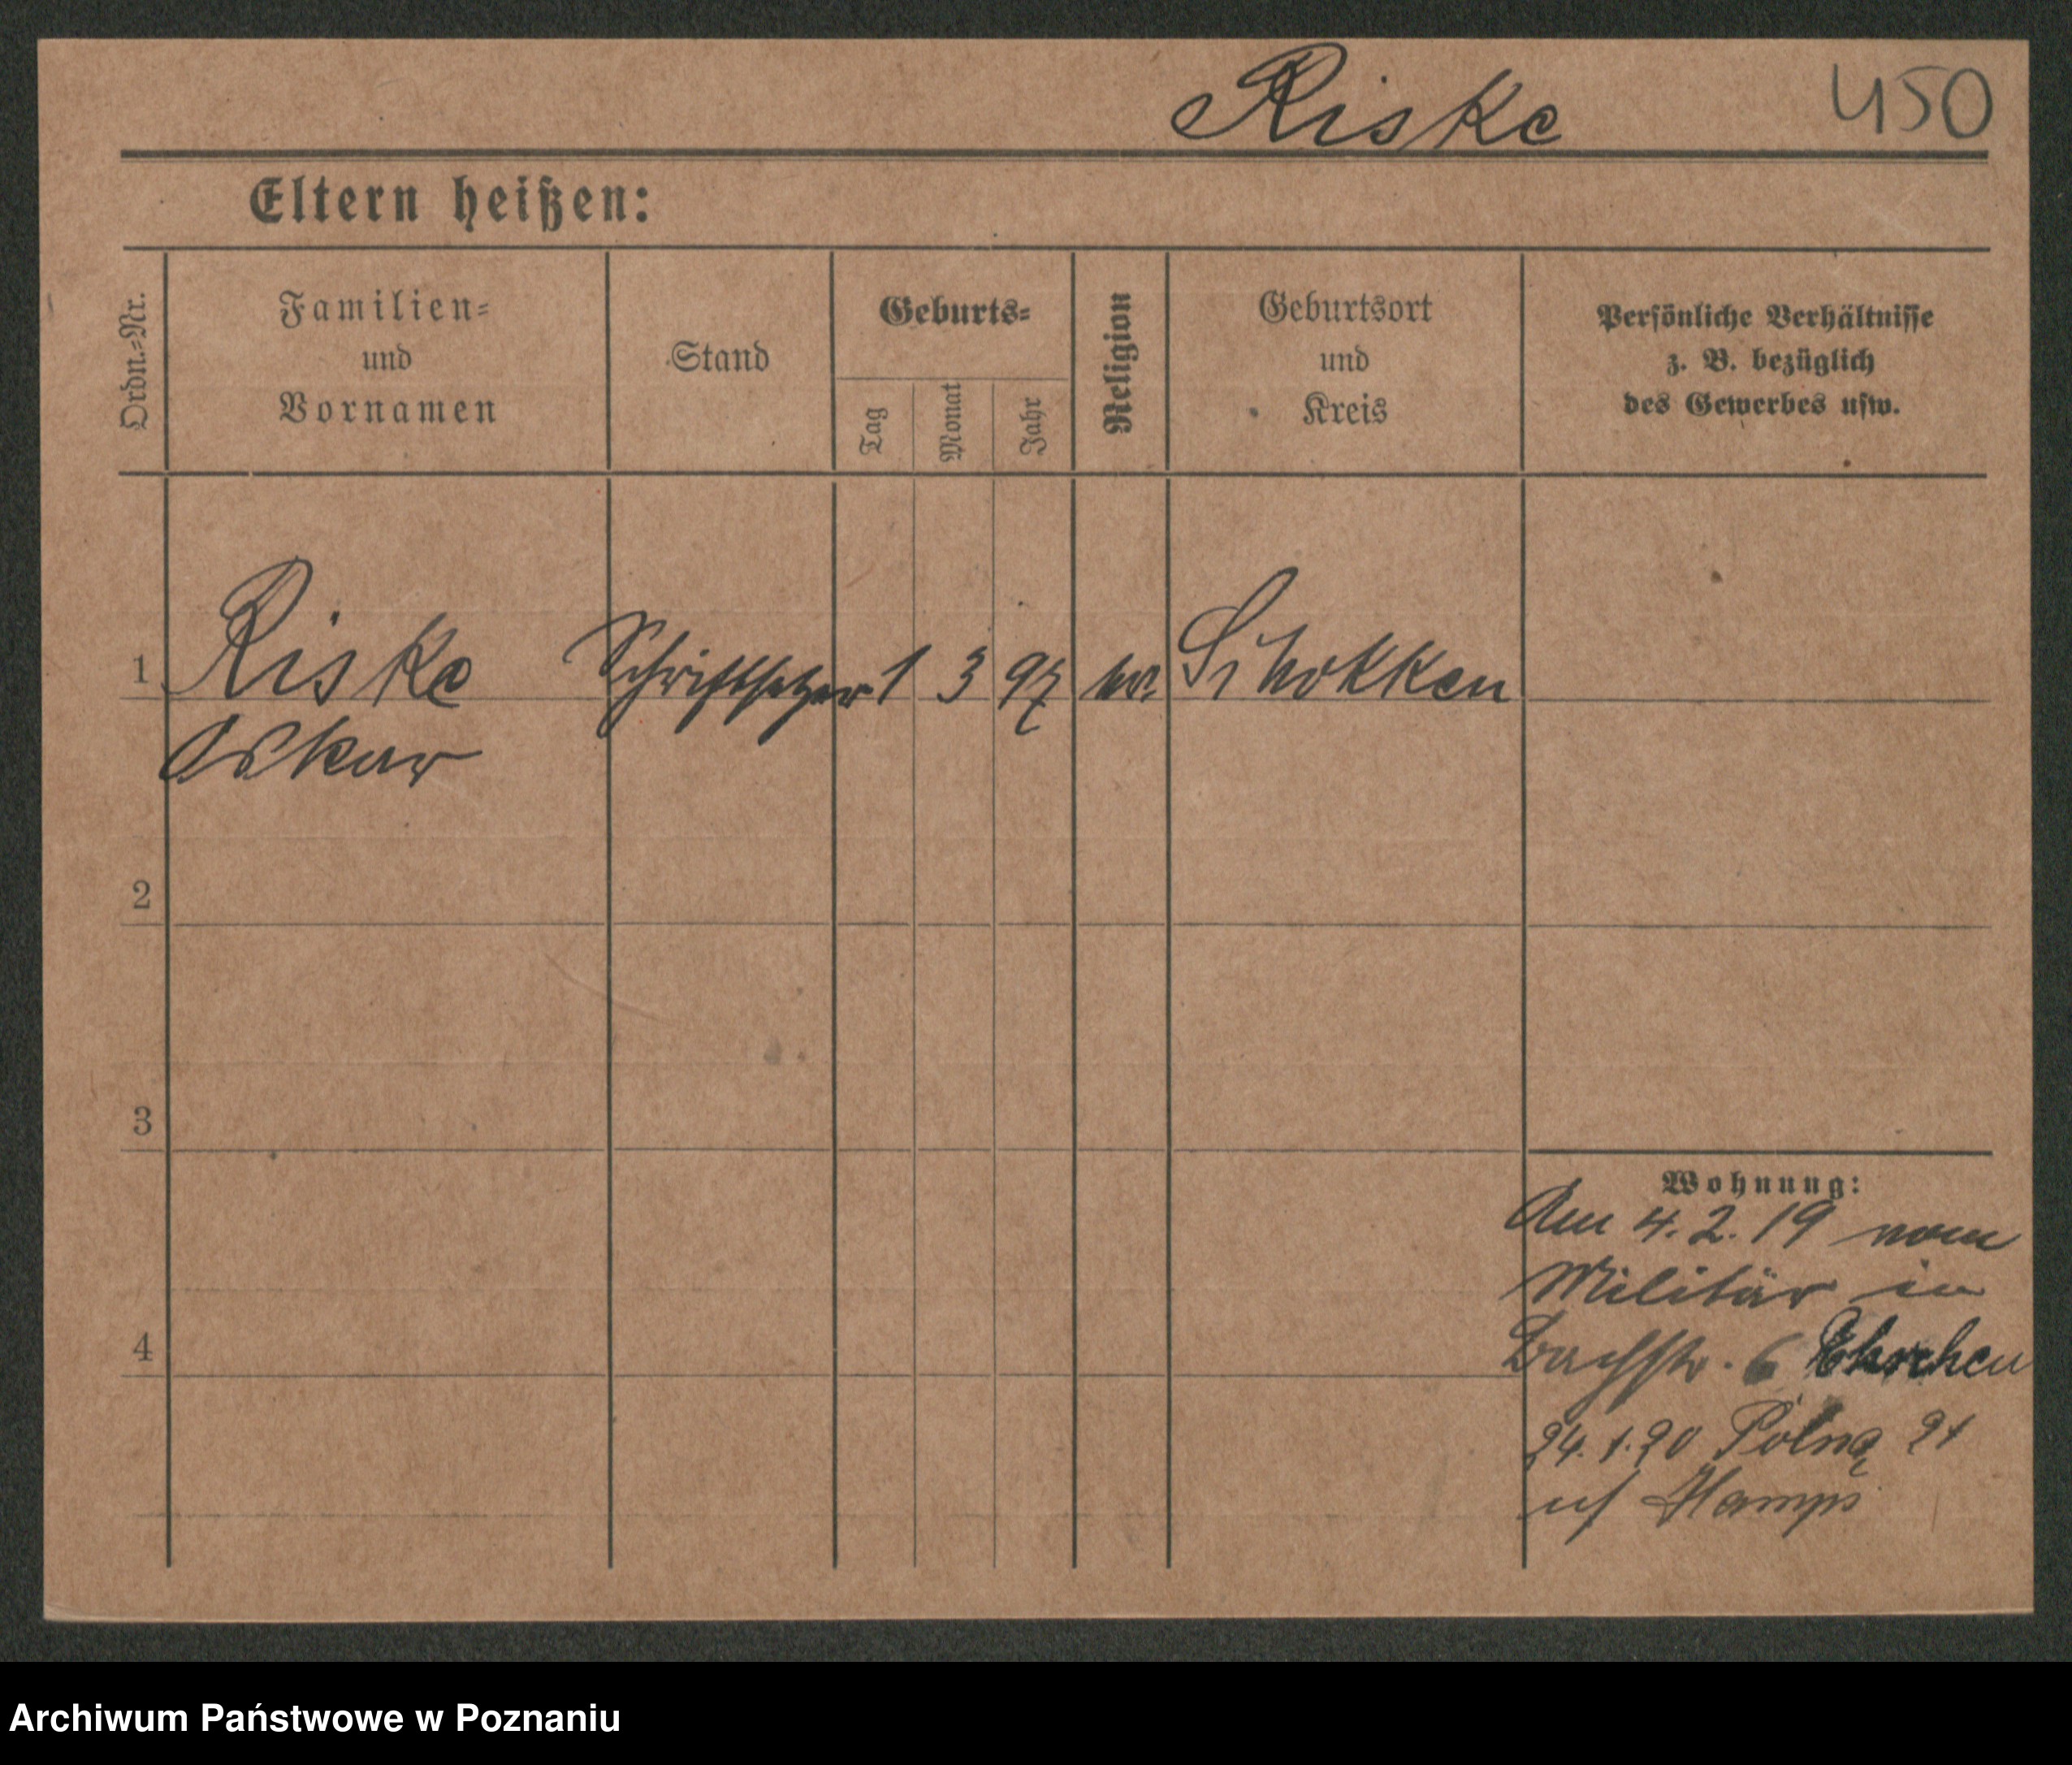 Riske 450
Eltern heißen:
Ordn.=Nr.
Familien=
und
Vornamen
Stand
Geburts=
Tag
Monat
Jahr
Religion
Geburtsort
und
Kreis
Persönliche Verhältnisse
z. B. bezüglich
des Gewerbes usw.
1 Riske Schriftsetzer 1 3 97 Schokken
Oskar
2
3
Wohnung:
Am 4.2.19 vom
Militär in
4
Bachstr. 6
24.1.20 Polna 21
Archiwum Państwowe w Poznaniu